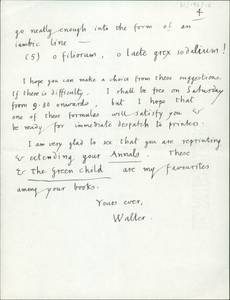 4
go neatly enough into the form of an
iambic line —
(5) o filiorum, o laete grex sodalium!
I hope you can make a choice from these suggestions.
If there is difficulty, I shall be free on Saturday
from 9.30 onwards, but I hope that
one of these formulae will satisfy you &
be ready for immediate despatch to printers.
I am very glad to see that you are reprinting
& extending your Annals. These
& The Green Child are my favourites
among your books.
Yours ever,
Walter.